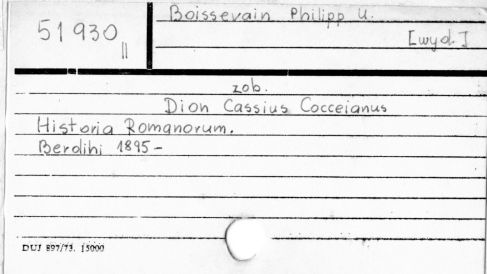 51930
II
Boissevain Philipp U.
[wyd.]
zob.
Dion Cassius Cocceianus
Historia Romanorum.
Berolini 1895-
DUJ 897/73. 15000